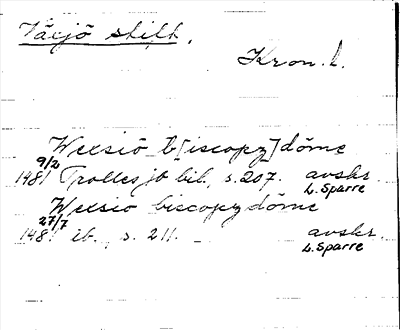 Växjö stift.
Kron. l.
Wexsiö b[iscopz]döme
9/2 1481 Trollesjö bib., s. 207. avskr. L. Sparre
Wexsio biscopz döme
27/7 148 ib., s. 211. avskr. L. Sparre